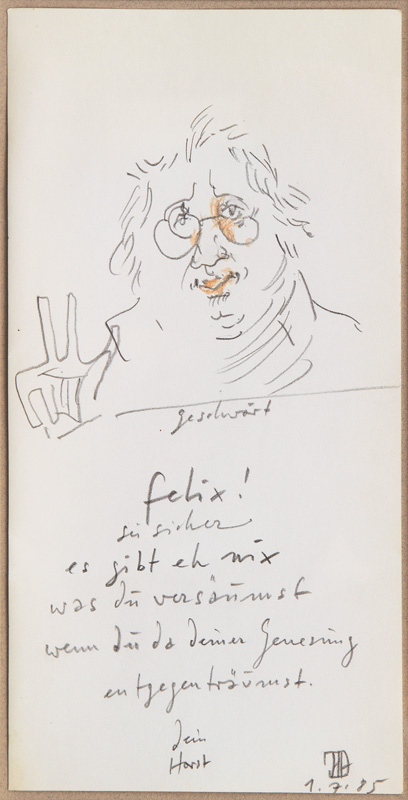 geschwört
felix!
sei sicher
es gibt eh nix
was du versäumst
wenn du da deiner Genesung
entgegenträumst.
dein
Horst
1.7.85